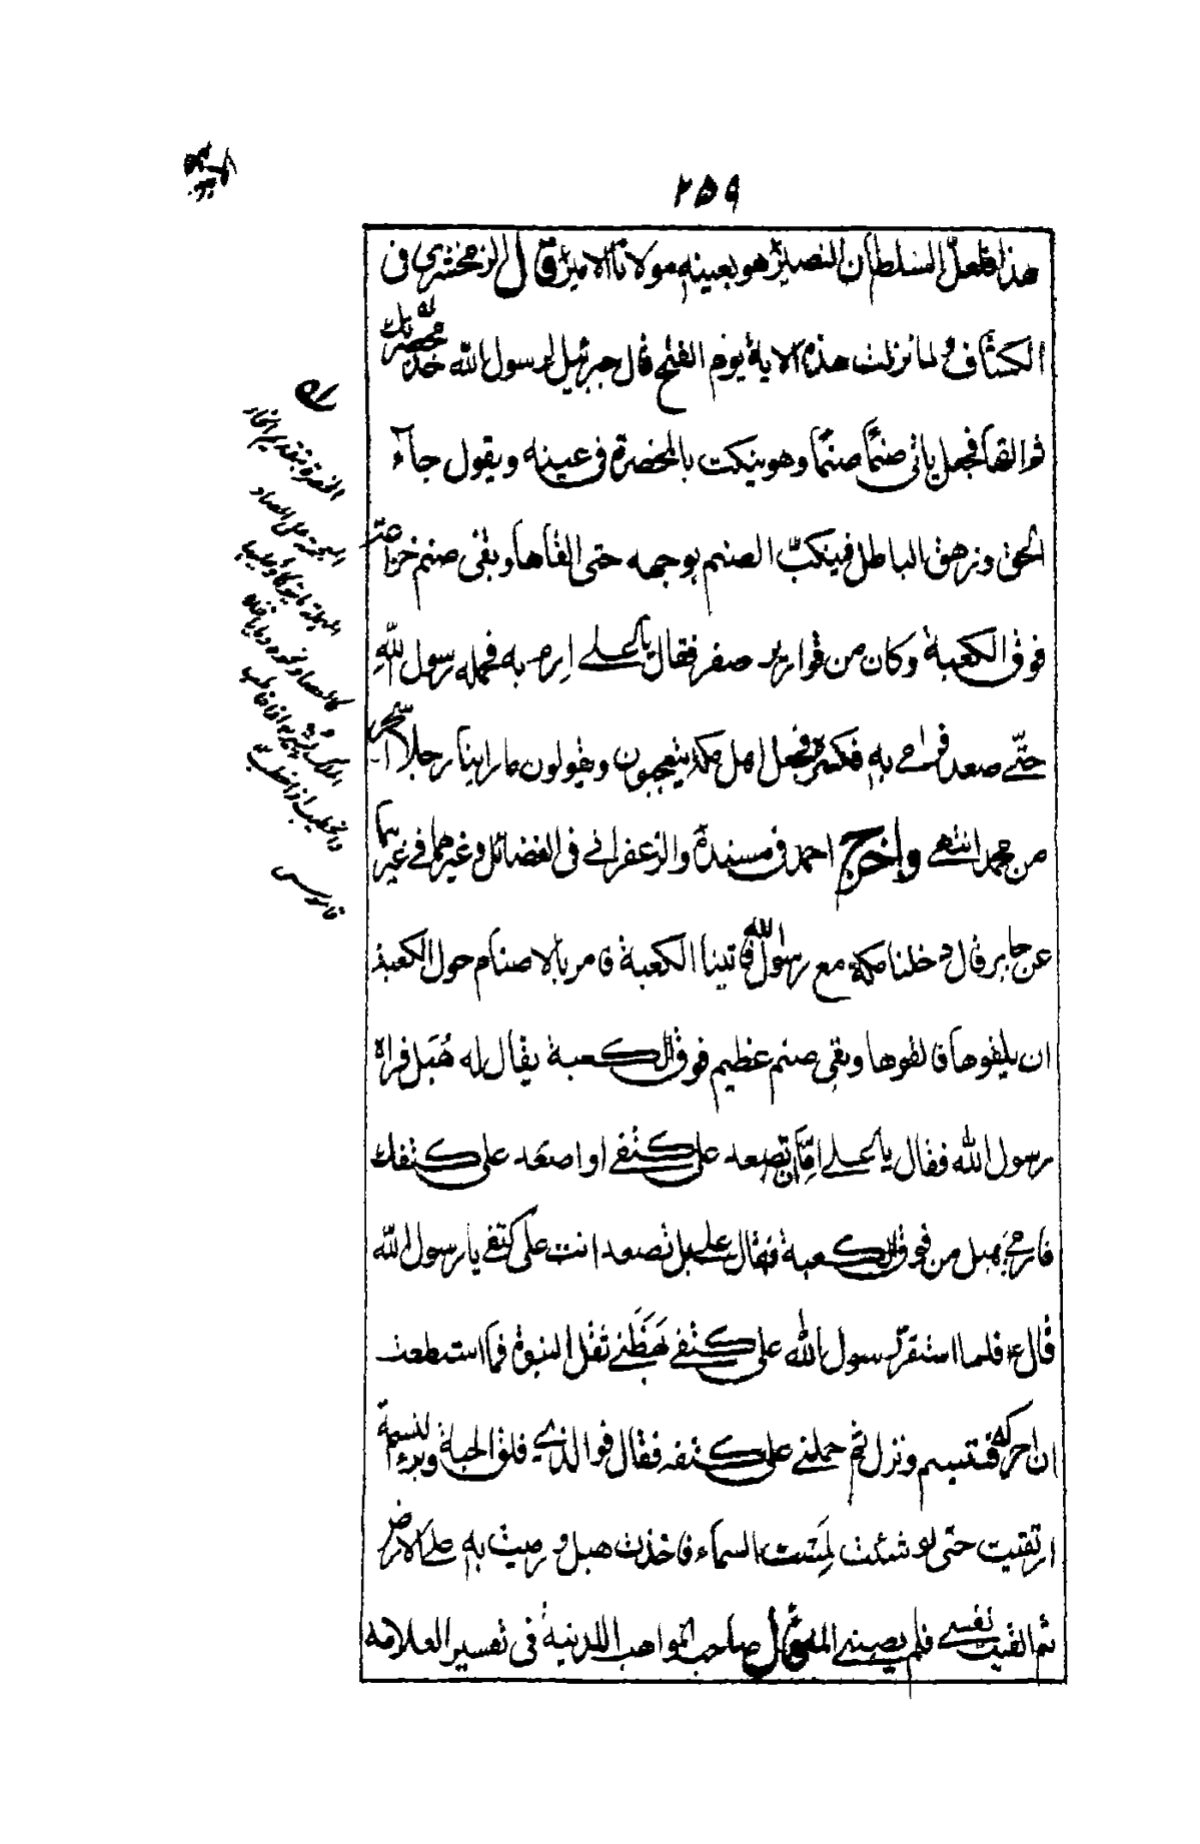 ٢٥٩
هذا فلعل السلطان النصير هو بعينه مولانا الامير قال الزمخشري في
الكشاف و لما نزلت هذه الاية يوم الفتح قال جبرئيل لرسول الله خذ مخصرتك
ثم القها فجعل ياتي صنما صنما وهو ينكت بالمخصرة في عينه ويقول جاء
الحق وزهق الباطل فينكب الصنم لوجهه حتى القاها وبقى صنم خزاعة
فوق الكعبة وكان من قوارير صفر فقال يا علي ارم به فحمله رسول الله
حتى صعد فرمى به فكسره فجعل اهل مكة يتعجبون ويقولون ما راينا رجلا اسحر
من محمد انتهى واخرج احمد في مسنده والزعفراني في الفضائل وغيرهما في غيرهما
عن جابر قال دخلنا مكة مع رسول الله فاتينا الكعبة فامر بالاصنام حول الكعبة
ان يلقوها فالقوها وبقى صنم عظيم فوق الكعبة يقال له هُبَل فراه
رسول الله فقال يا علي اما ان تصعد على كتفي او اصعد على كتفك
فارمي بهبل من فوق الكعبة فقال علي بل تصعد انت على كتفي يا رسول الله
قال ع فلما استقر رسول الله على كتفي بهظني ثقل النبوة فما استطعت
ان احركه فتبسم ونزل ثم حملني على كتفه فقال فوالذي فلق الحبة وبرء النسمة
ارتقيت حتى لو شئت لمسست السماء فاخذت هبل و رميت به على الارض
ثم القيت نفسي فلم يصبني الم قال صاحب المواهب اللدنية في تفسير العلامه
المخصرة بتقديم الخاء
المعجمة على الصاد
المهملة ما يتوكأ عليها
كالعصا ونحوه وما ياخذه
الملك يشير به اذا خاطب
والخطيب اذا خطب
قاموس